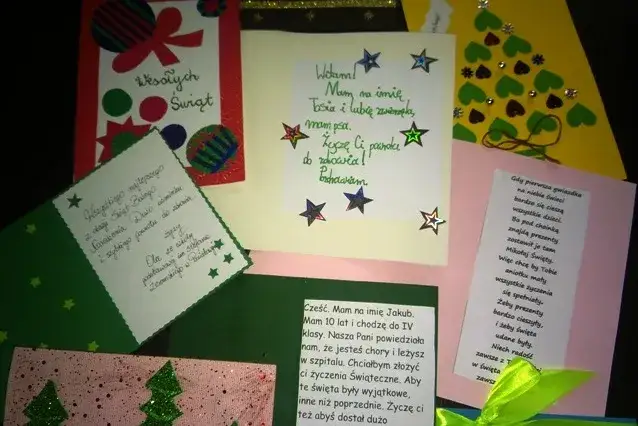 Wesołych
Świąt
Witam!
Mam na imię
Tosia i lubię zwierzęta,
mam psa.
Życzę Ci powrotu
do zdrowia!
Pozdrawiam
Wszystkiego najlepszego
z okazji Świąt Bożego
Narodzenia. Dużo uśmiechu
i szybkiego powrotu do zdrowia
życzy
Ola ze szkoły
podstawowej im. Stefana
Żeromskiego w
Gdy pierwsza gwiazdka
na niebie świeci
bardzo się cieszą
wszystkie dzieci.
Bo pod choinką
znajdą prezenty
zostawił je tam
Mikołaj Święty.
Więc chcę by Tobie
aniołku mały
wszystkie życzenia
się spełniały.
Żeby prezenty
bardzo cieszyły,
i żeby święta
udane były.
Niech radość
zawsze z
w święta
zawsz
Cześć. Mam na imię Jakub.
Mam 10 lat i chodzę do IV
klasy. Nasza Pani powiedziała
nam, że jesteś chory i leżysz
w szpitalu. Chciałbym złożyć
ci życzenia Świąteczne. Aby
te święta były wyjątkowe,
inne niż poprzednie. Życzę ci
też abyś dostał dużo